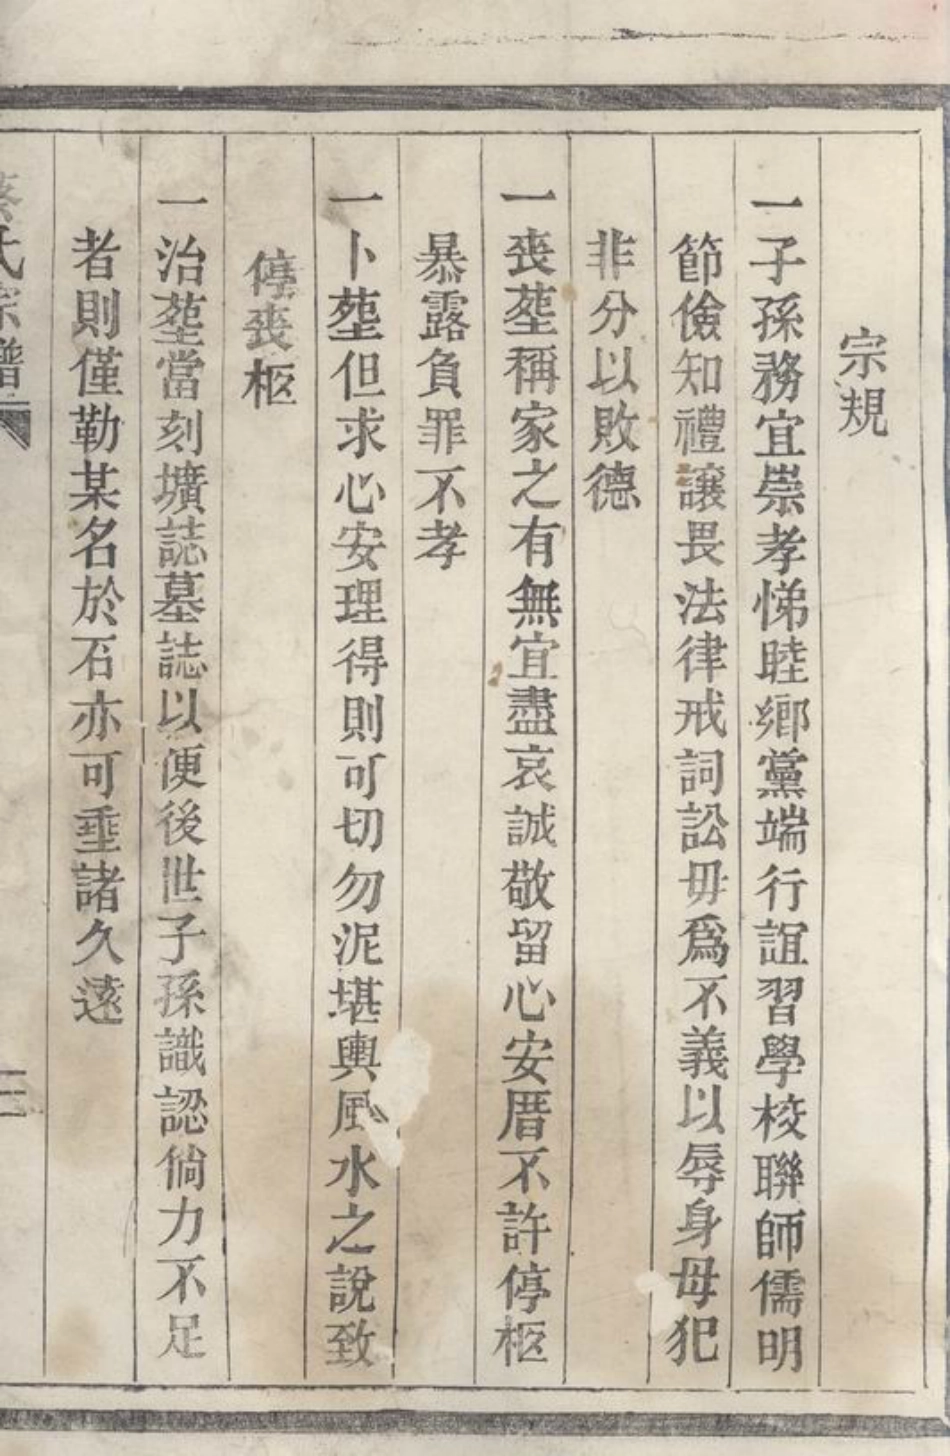 宗規
一子孫務宜崇孝悌睦鄉黨端行誼習學校聯師儒明
節儉知禮讓畏法律戒詞訟毋爲不義以辱身毋犯
非分以敗德
一喪塟稱家之有無宜盡哀誠敬留心安厝不許停柩
暴露負罪不孝
一卜塟但求心安理得則可切勿泥堪輿風水之說致
停喪柩
一治塟當刻壙誌墓誌以便後世子孫識認倘力不足
者則僅勒某名於石亦可垂諸久遠
氏宗譜
二